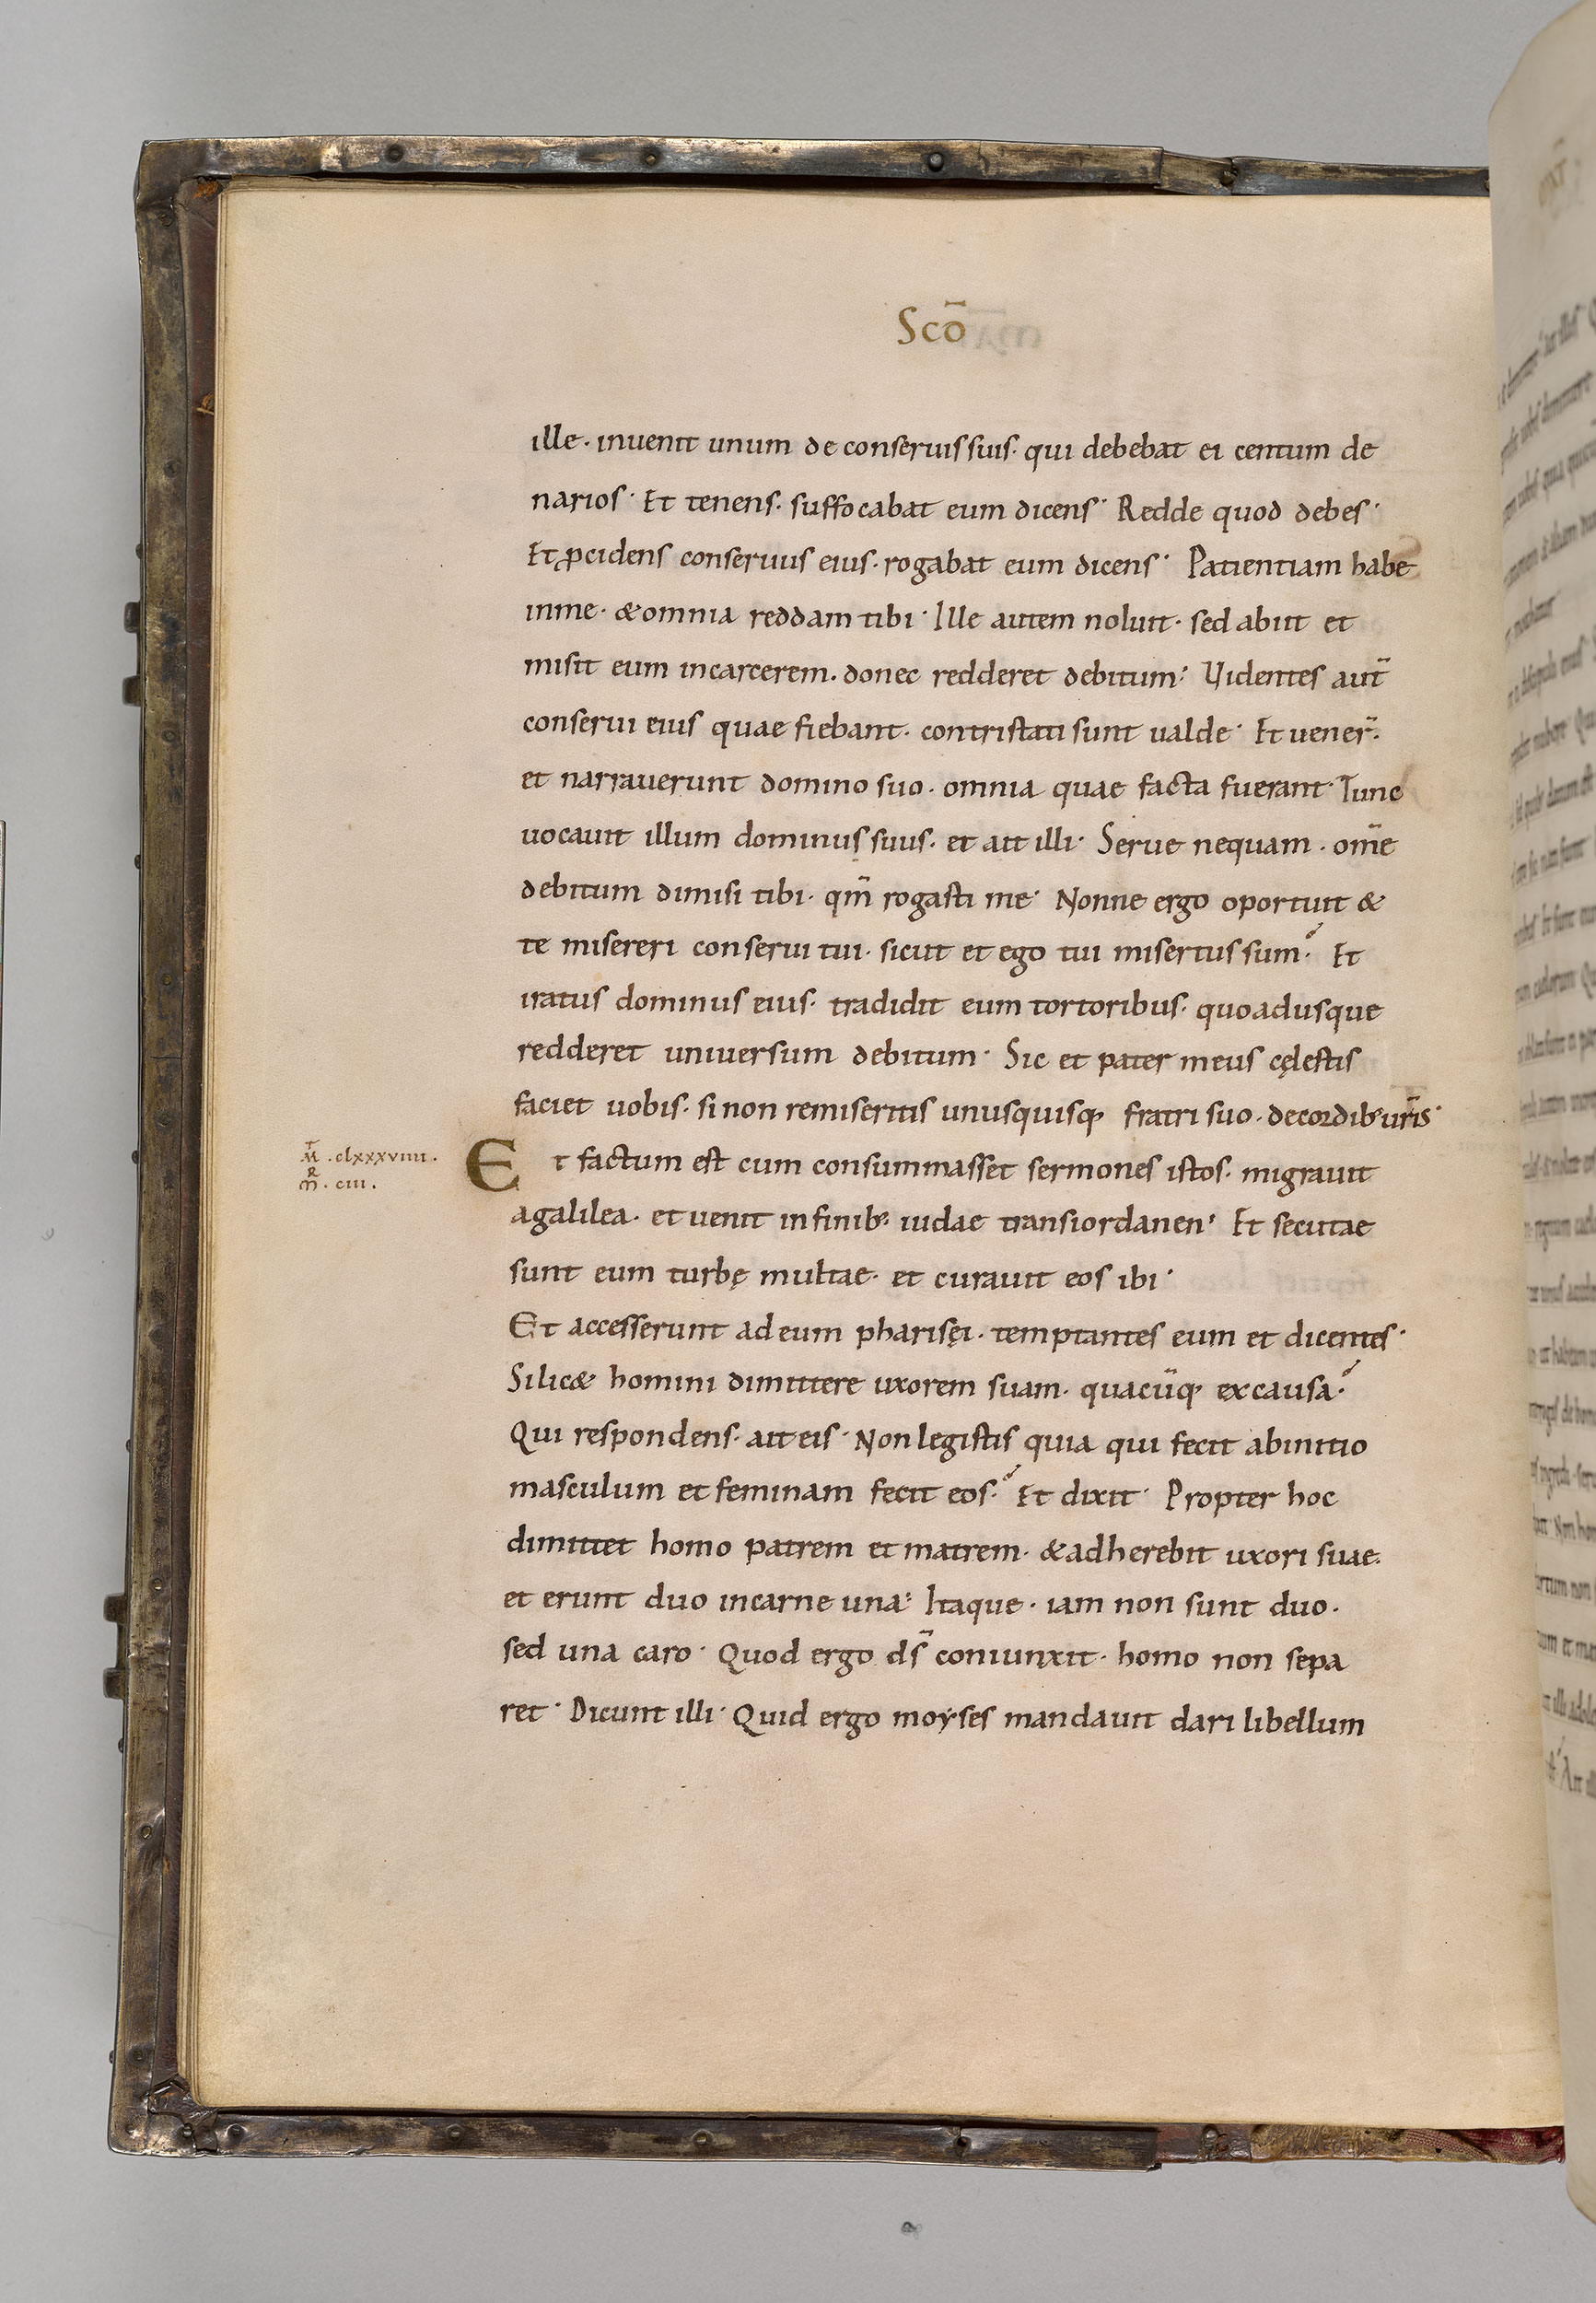 Scō
ille · inuenit unum de conseruis suis · qui debebat ei centum de
narios · Et tenens · suffocabat eum dicens · Redde quod debes ·
Et ꝓcidens conseruus eius · rogabat eum dicens · Patientiam habe
in me · & omnia reddam tibi · Ille autem noluit · sed abiit et
misit eum in carcerem · donec redderet debitum · Uidentes aut̄
conserui eius quae fiebant · contristati sunt ualde · Et uener̄ ·
et narrauerunt domino suo · omnia quae facta fuerant · Tunc
uocauit illum dominus suus · et ait illi · Serue nequam · om̄e
debitum dimisi tibi · qm̄ rogasti me · Nonne ergo oportuit &
te misereri conserui tui · sicut et ego tui misertus sum · Et
iratus dominus eius · tradidit eum tortoribus · quoadusque
redderet uniuersum debitum · Sic et pater meus cęlestis
faciet uobis · si non remiseritis unusquisq; fratri suo · de cordib; ur̄is ·
M̄ · clxxxviiii ·
R
m̄ · ciii ·
Et factum est cum consummasset sermones istos · migrauit
a galilea · et uenit in finib; iudae trans iordanen · Et secutae
sunt eum turbę multae · et curauit eos ibi ·
Et accesserunt ad eum pharisęi · temptantes eum et dicentes ·
Si lic& homini dimittere uxorem suam · quacūq; ex causa ·
Qui respondens · ait eis · Non legistis quia qui fecit ab initio
masculum et feminam fecit eos · Et dixit · Propter hoc
dimittet homo patrem et matrem · & adherebit uxori suae ·
et erunt duo in carne una · Itaque · iam non sunt duo ·
sed una caro · Quod ergo ds̄ coniunxit · homo non sepa
ret · Dicunt illi · Quid ergo moyses mandauit dari libellum